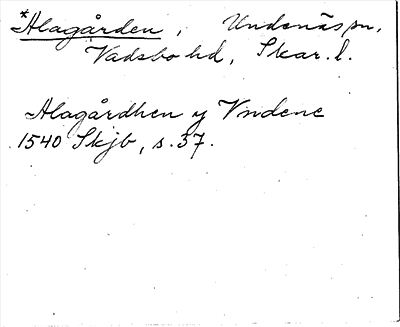 *Alagården, Undenäs sn,
Vadsbo hd, Skar. l.
Alagårdhen y Vndene
1540 Skjb, s. 37.